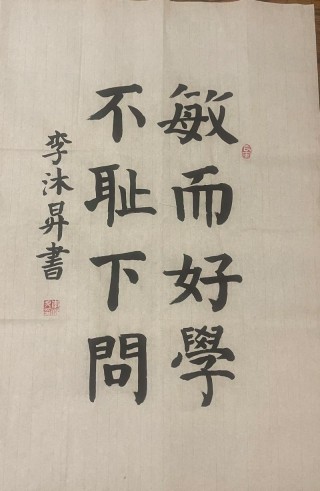 敏而好學
不恥下問
李沐昇書